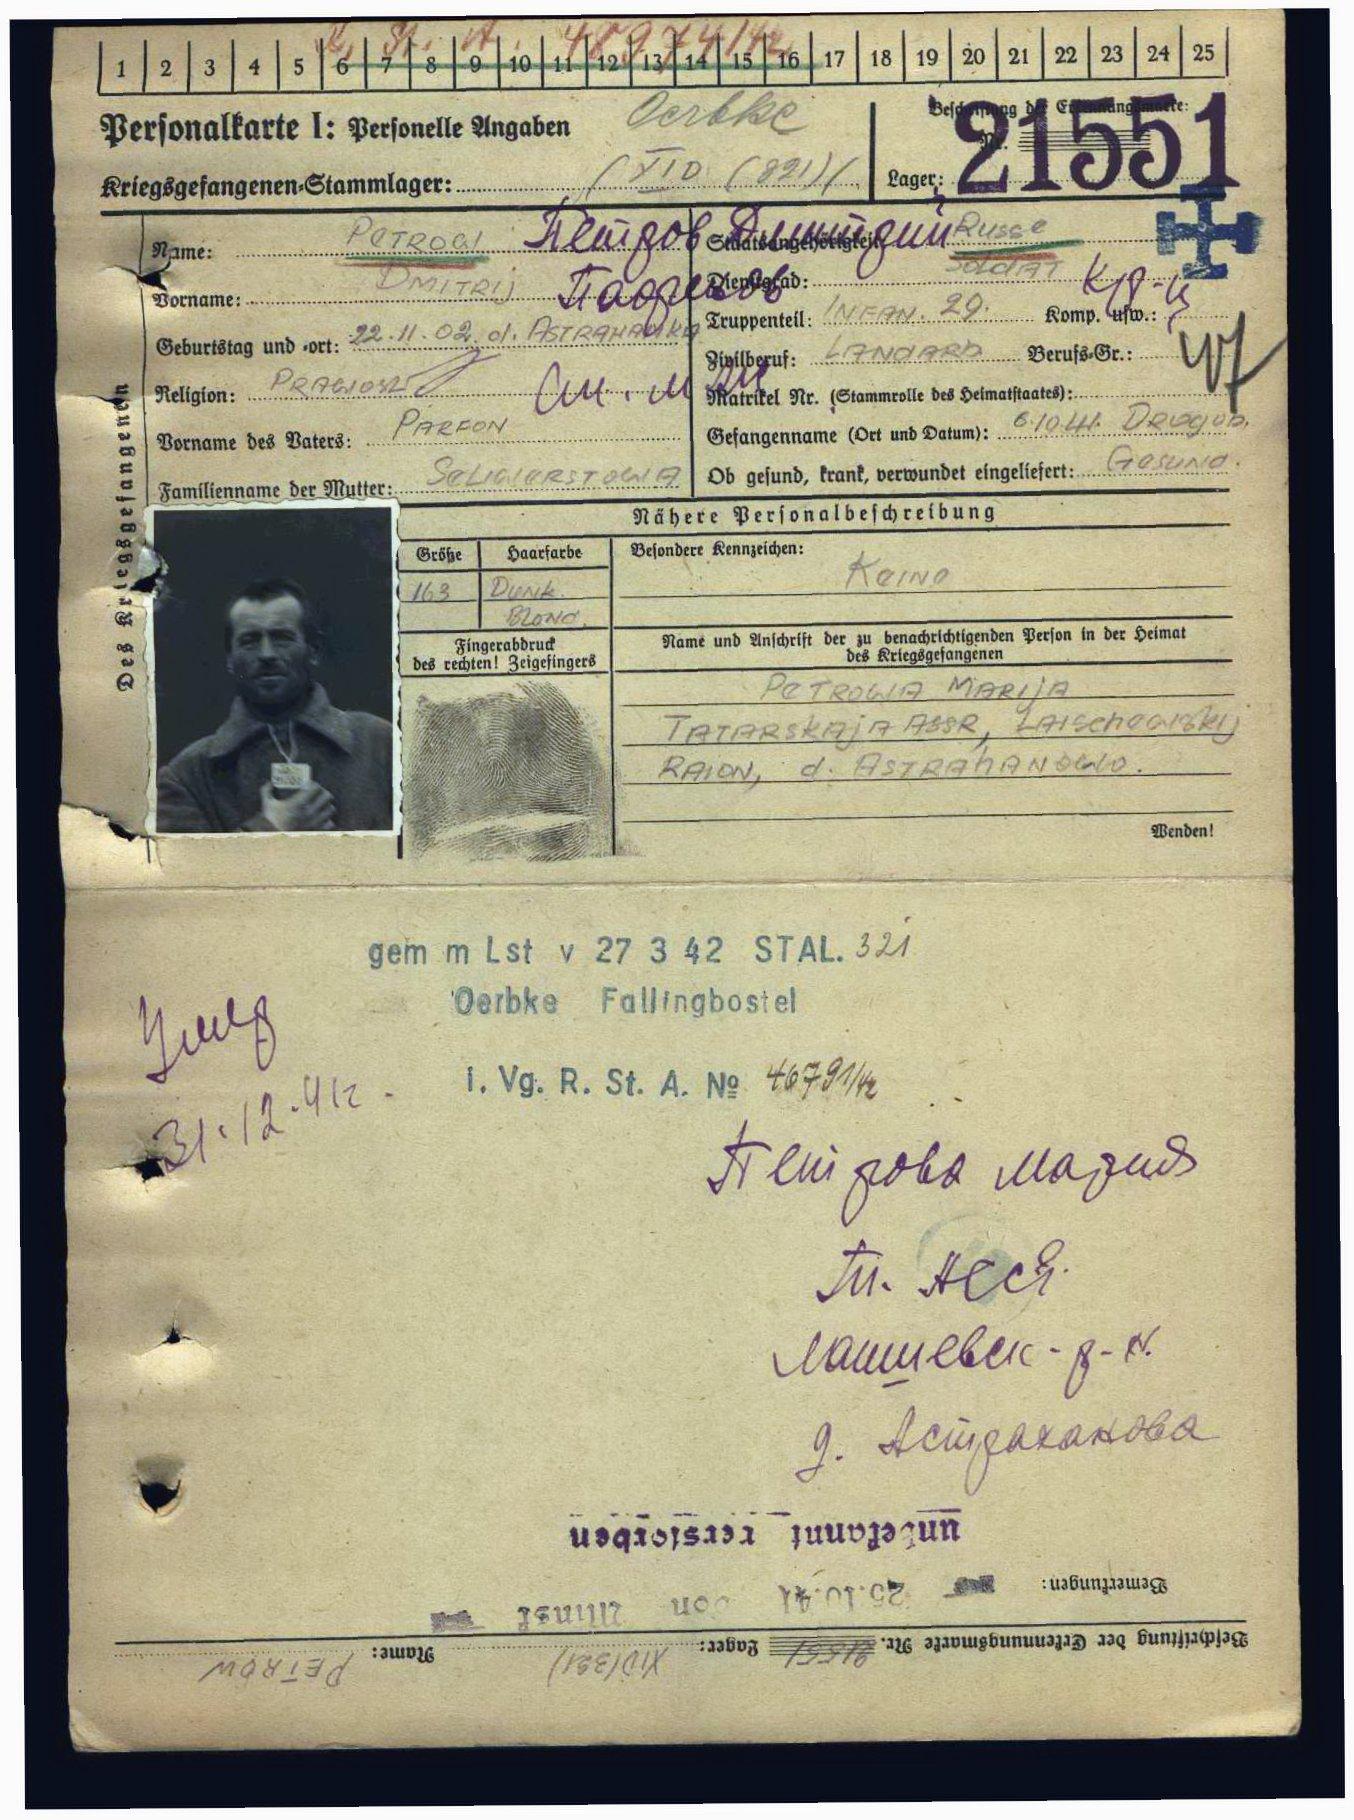 R. St. A. 48974/42
1 2 3 4 5 6 7 8 9 10 11 12 13 14 15 16 17 18 19 20 21 22 23 24 25
Personalkarte I: Personelle Angaben
Oerbke
Kriegsgefangenen-Stammlager: (XI D (321)
Beschriftung der Erkennungsmarke:
Nr. 21551
Lager:
Des Kriegsgefangenen
Name: PETROW Петров Дмитрий
Vorname: DMITRIJ
Geburtstag und -ort: 22.11.02. d. ASTRAHANKA
Religion: PRAWOSL
Vorname des Vaters: PARFON
Familienname der Mutter: SELIWERSTOWA
Staatsangehörigkeit: Russe
Dienstgrad: SOLDAT кр-ц
Truppenteil: INFAN. 29. Komp. usw.:
Zivilberuf: LANDARB Berufs-Gr.: 47
Matrikel Nr. (Stammrolle des Heimatstaates):
Gefangennahme (Ort und Datum): 6.10.41. DROGOB.
Ob gesund, krank, verwundet eingeliefert: GESUND.
Nähere Personalbeschreibung
Größe Haarfarbe
163 DUNK. BLOND.
Besondere Kennzeichen:
KEINE
Fingerabdruck
des rechten! Zeigefingers
Name und Anschrift der zu benachrichtigenden Person in der Heimat
des Kriegsgefangenen
PETROWA MARIJA
TATARSKAJA ASSR, LAISCHEWSKIJ
RAION, d. ASTRAHANOWO.
Wenden!
gem m Lst v 27 3 42 STAL. 321
Oerbke Fallingbostel
i. Vg. R. St. A. № 46791/42
Умер
31.12.41г.
Петрова Мария
Т. АССР.
Лаишевск-р-н.
д. Астраханова
unbekannt verstorben
Bemerkungen: 25.10.41 von Minsk
Beschriftung der Erkennungsmarke Nr. 21551 Lager: XI D (321) Name: PETROW